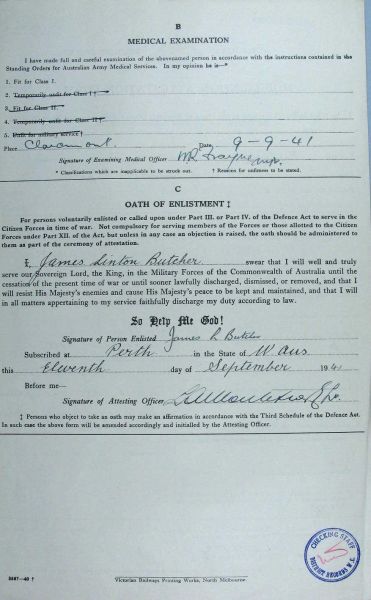 B
MEDICAL EXAMINATION
I have made full and careful examination of the abovenamed person in accordance with the instructions contained in
Standing Orders for Australian Army Medical Services. In my opinion he is—*
1. Fit for Class I.
2. Temporarily unfit for Class I †
3. Fit for Class II.
4. Temporarily unfit for Class II †
5. Unfit for military service †
Place Claremont. Date 9-9-41
Signature of Examining Medical Officer
* Classifications which are inapplicable to be struck out. † Reason for unfitness to be stated.
C
OATH OF ENLISTMENT ‡
For persons voluntarily enlisted or called upon under Part III. or Part IV. of the Defence Act to serve in the
Citizen Forces in time of war. Not compulsory for serving members of the Forces or those allotted to the Citizen
Forces under Part XII. of the Act, but unless in any case an objection is raised, the oath should be administered to
them as part of the ceremony of attestation.
I, James Linton Butcher swear that I will well and truly
serve our Sovereign Lord, the King, in the Military Forces of the Commonwealth of Australia until the
cessation of the present time of war or until sooner lawfully discharged, dismissed, or removed, and that I
will resist His Majesty's enemies and cause His Majesty's peace to be kept and maintained, and that I will
in all matters appertaining to my service faithfully discharge my duty according to law.
So Help Me God!
Signature of Person Enlisted James L Butcher
Subscribed at Perth in the State of W. Aus
this Eleventh day of September 1941
Before me—
Signature of Attesting Officer
‡ Persons who object to take an oath may make an affirmation in accordance with the Third Schedule of the Defence Act.
In such case the above form will be amended accordingly and initialled by the Attesting Officer.
CHECKING STAFF
DISTRICT RECORDS
3887—40 †
Victorian Railways Printing Works, North Melbourne